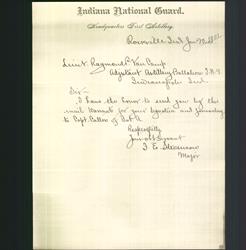 Indiana National Guard.
Headquarters First Artillery.
Rockville Ind Jan
Lieut Raymond Van Camp
Adjutant Artillery Battalion I.N.G.
Indianapolis Ind.
Sir:-
I have the honor to send you by this
mail Warrant for your signature and forwarding
to Capt. Ballou of Bat. A.
Respectfully
Your obt Servant
Major